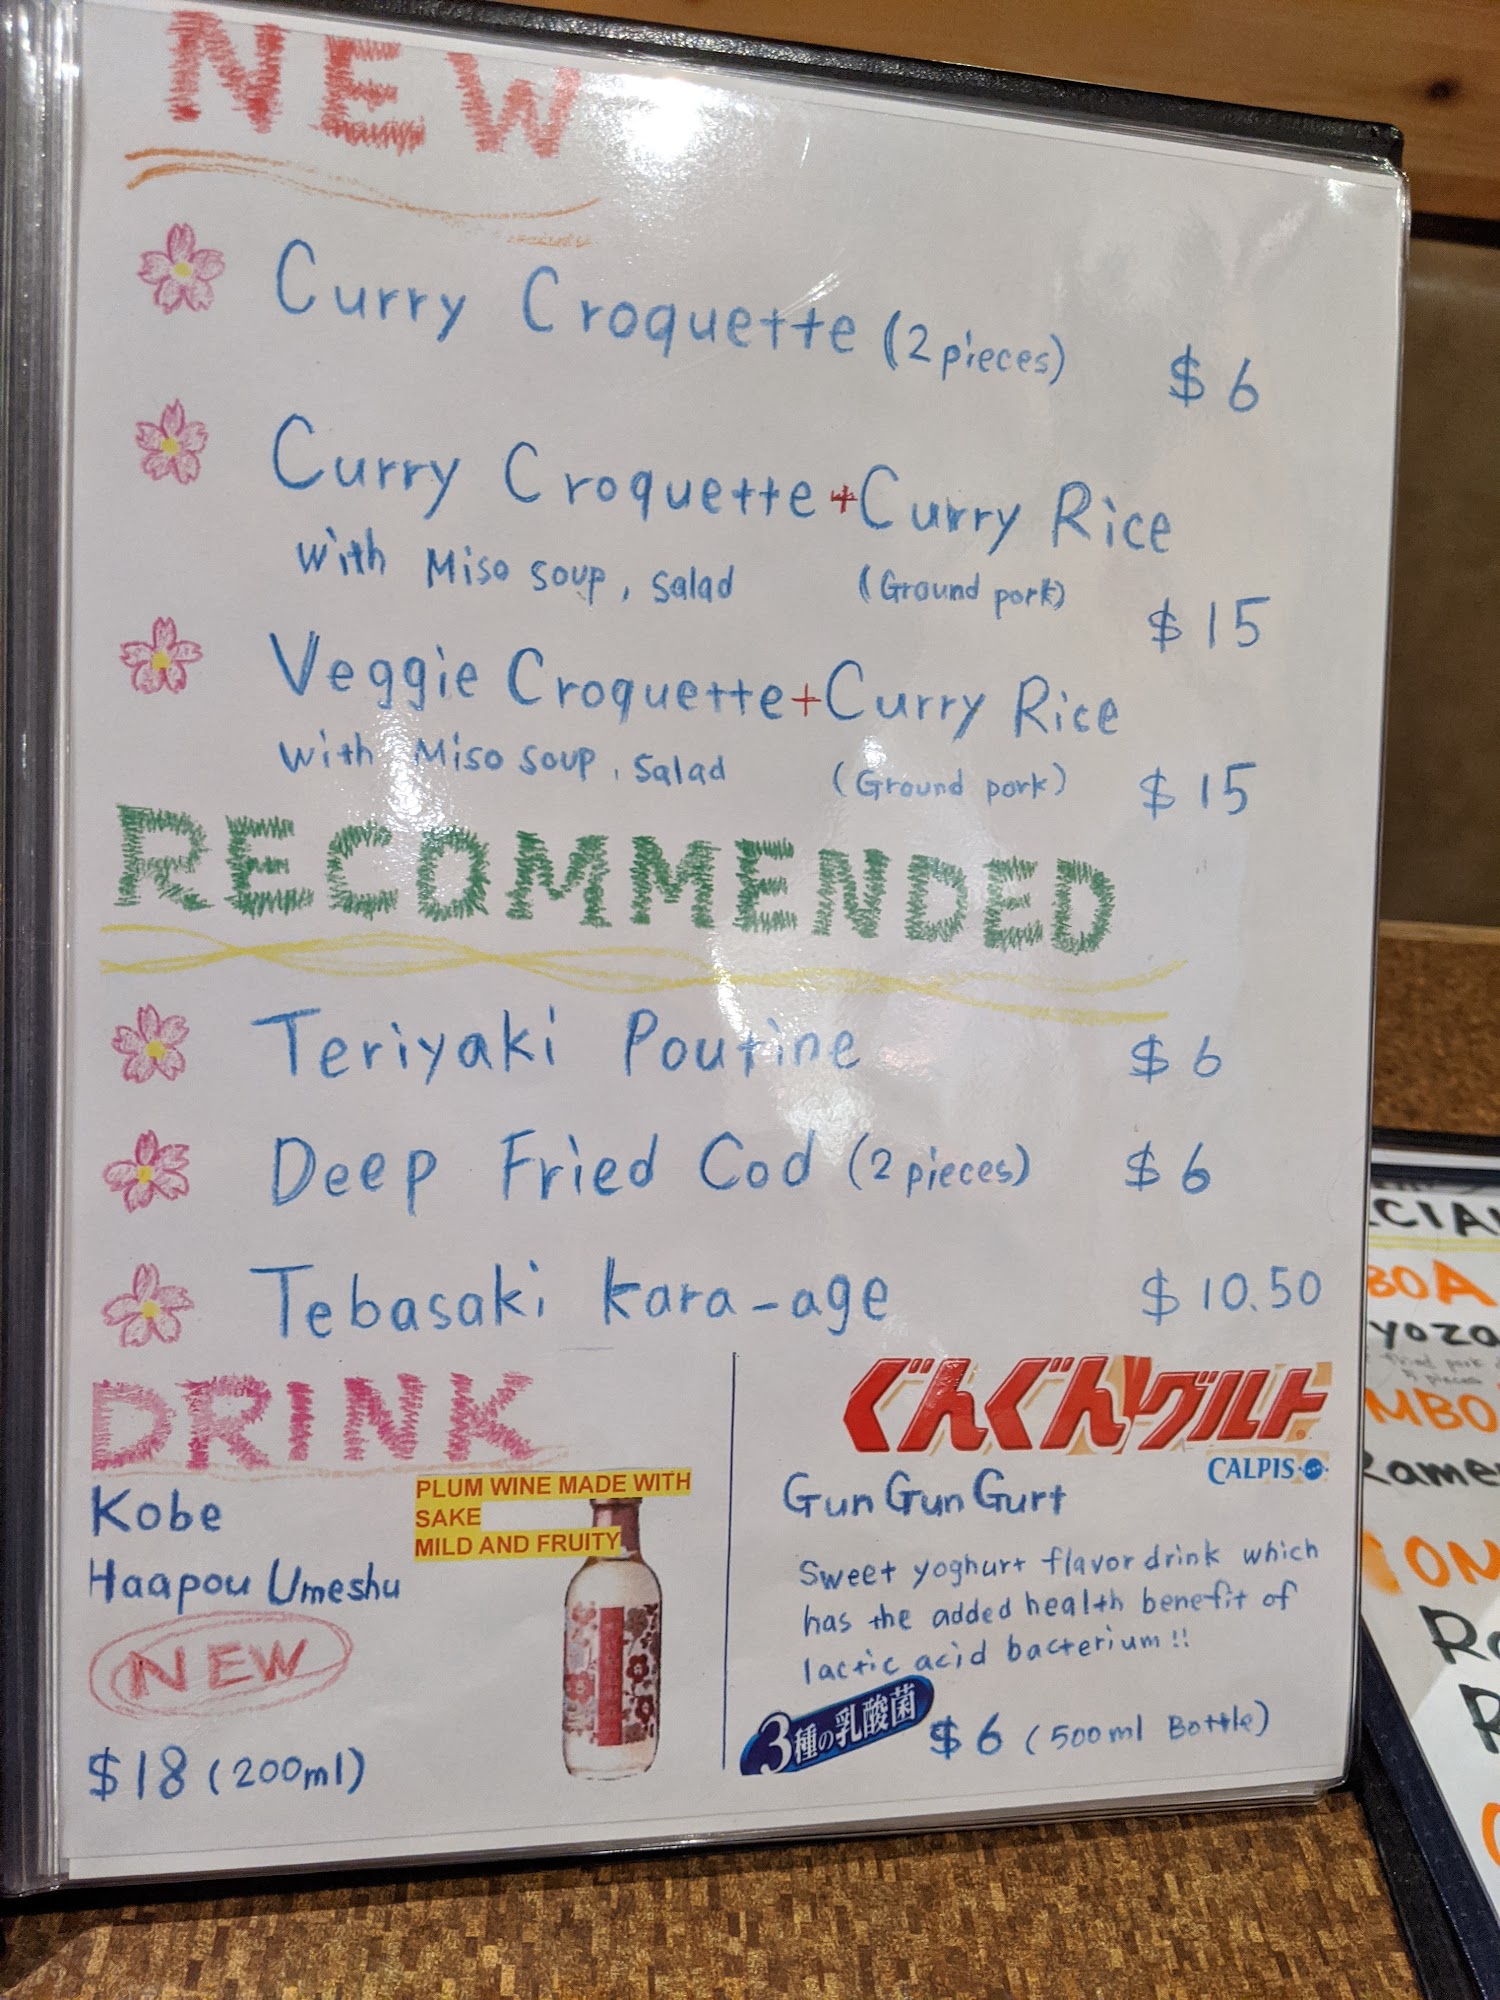 NEW
Curry Croquette (2 pieces) $6
Curry Croquette + Curry Rice
with Miso soup, Salad (Ground pork) $15
Veggie Croquette + Curry Rice
with Miso soup, Salad (Ground pork) $15
RECOMMENDED
Teriyaki Poutine $6
Deep Fried Cod (2 pieces) $6
Tebasaki Kara-age $10.50
DRINK
Kobe
Haapou Umeshu
NEW
$18 (200ml)
PLUM WINE MADE WITH
SAKE
MILD AND FRUITY
ぐんぐんグルト
CALPIS
Gun Gun Gurt
Sweet yoghurt flavor drink which
has the added health benefit of
lactic acid bacterium!!
3種の乳酸菌
$6 (500ml Bottle)
CIA
BOA
yoza
5 pieces
MBO
Rame
ON
R